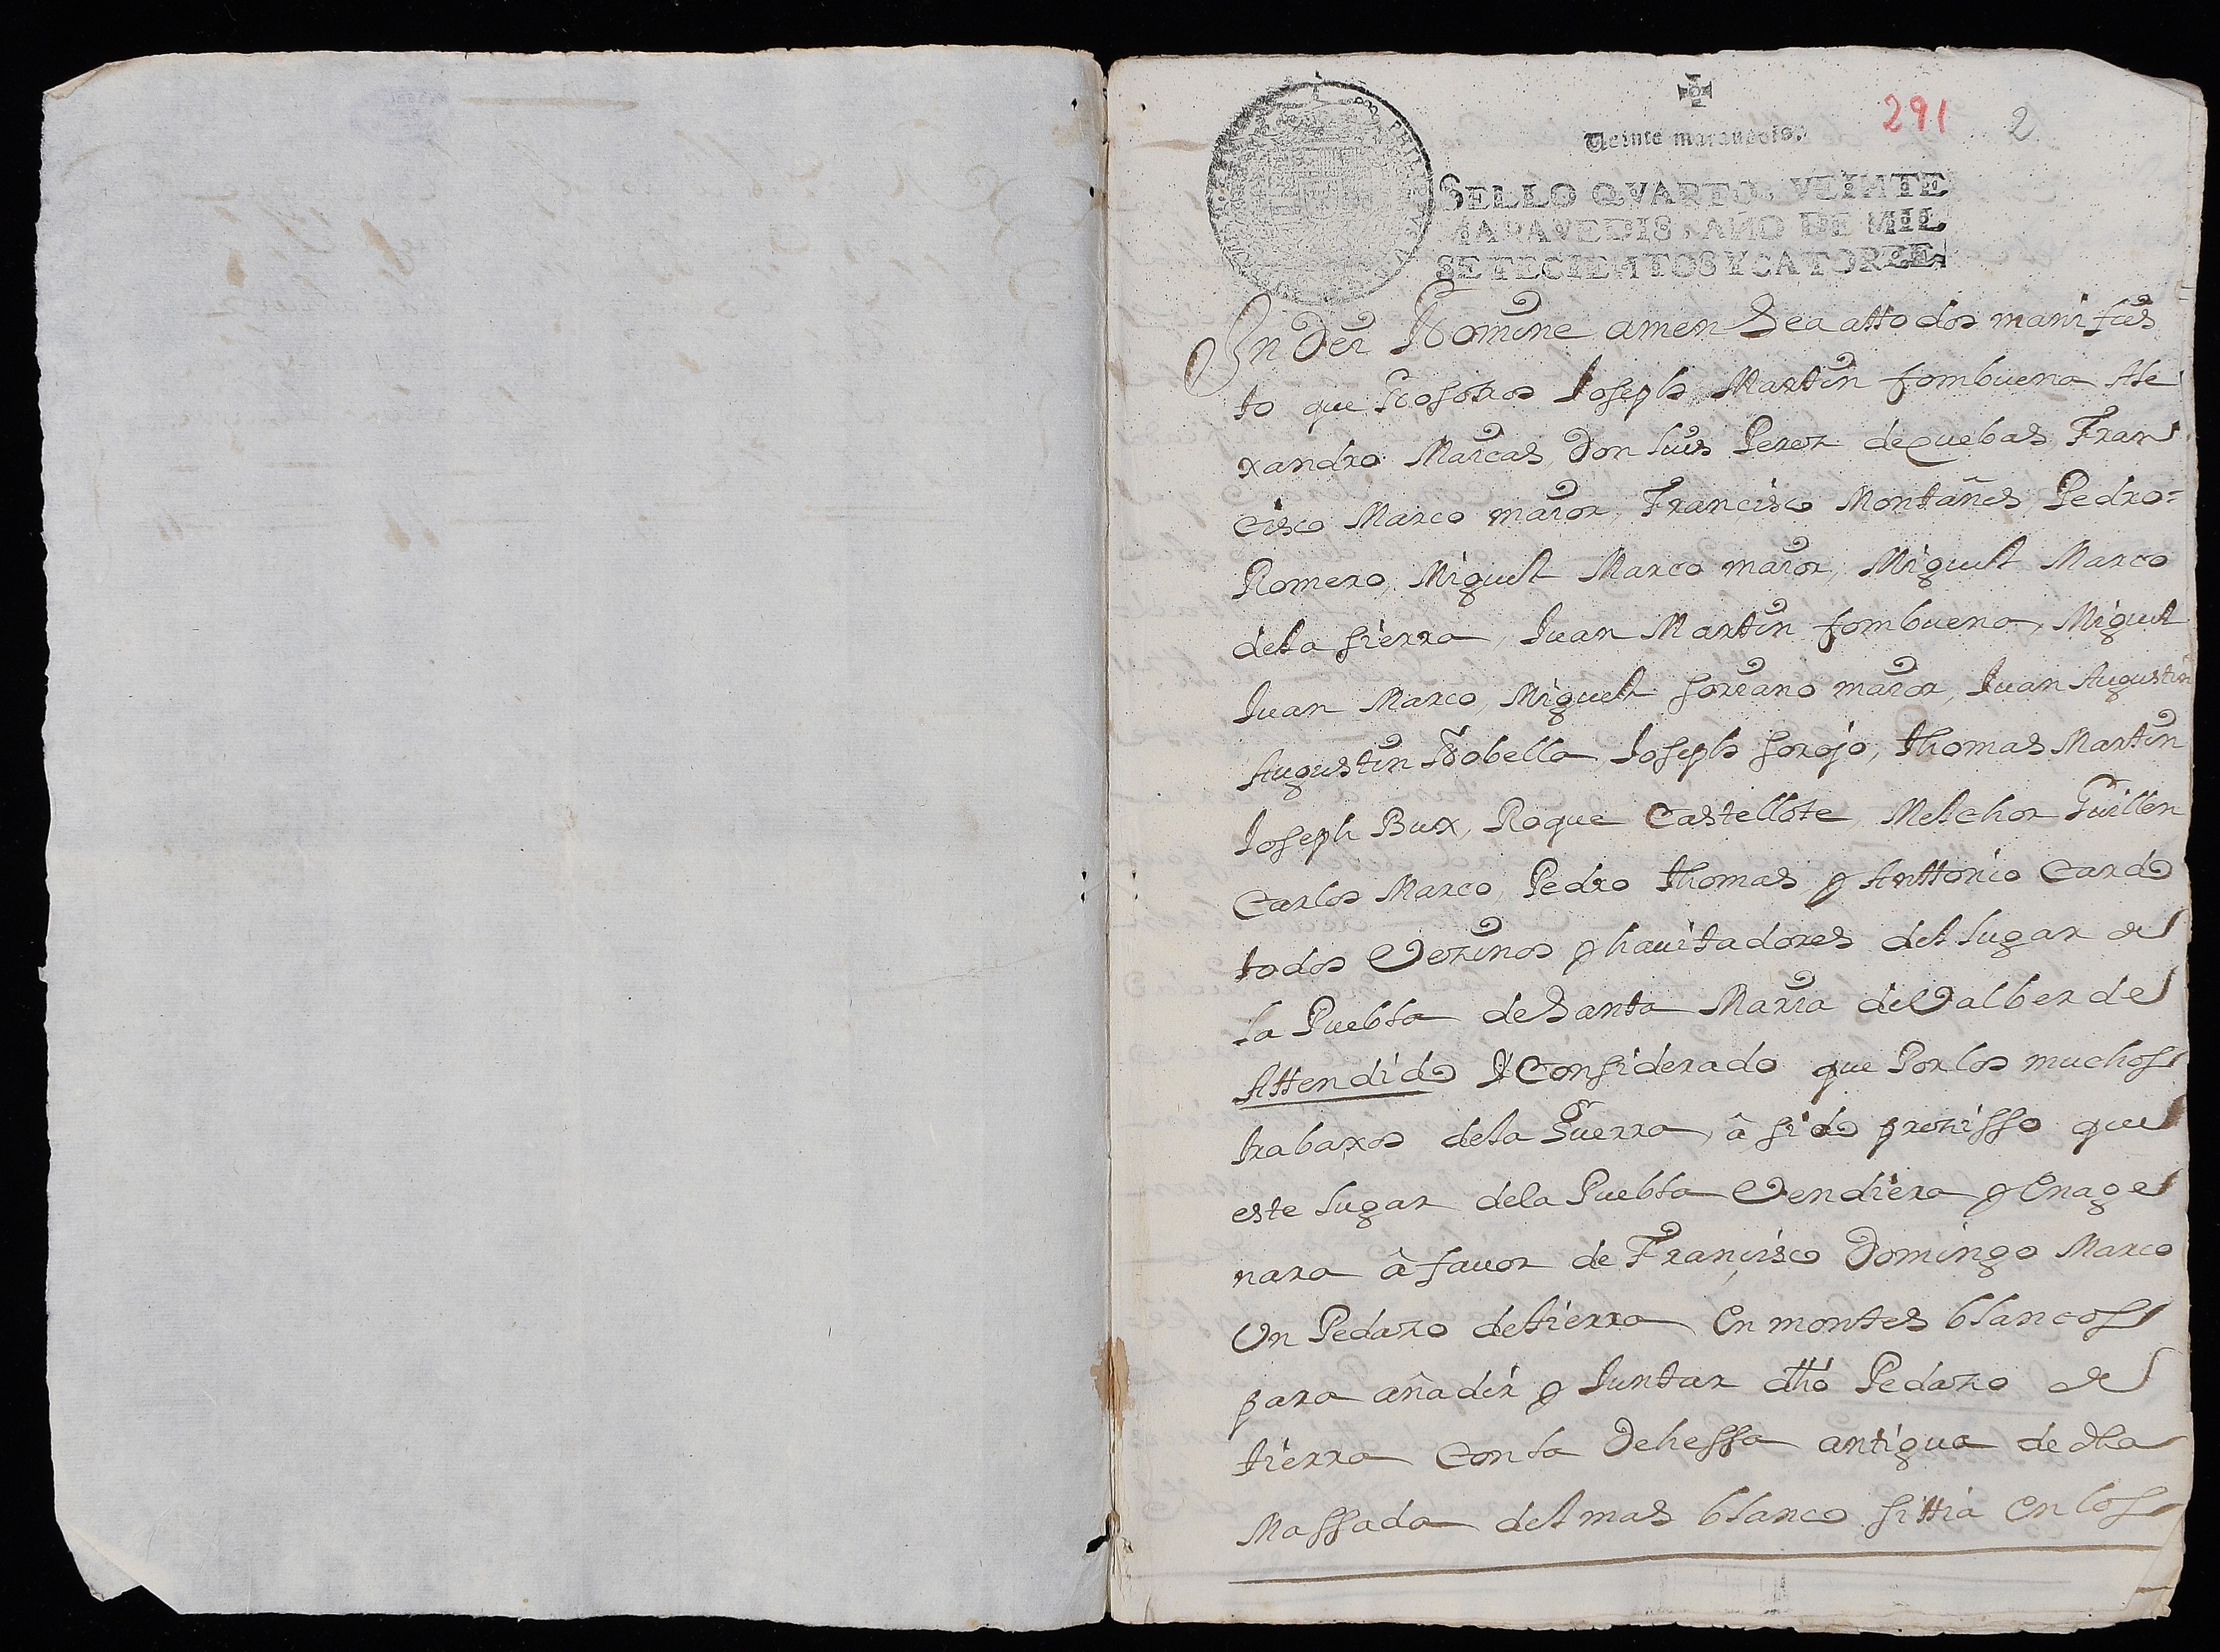 291 2
Veinte maravedis.
SELLO QVARTO, VEINTE
MARAVEDIS, AÑO DE MIL
SETECIENTOS Y CATORCE.
In Dei Nomine amen Sea atto dos manifies
to que Nosotros Joseph Martin fombuena Ale
xandro Marcas, Don Luis Perez de Cuebas, Fran
cisco Marco maior, Francisco Montañes, Pedro=
Romero, Miguel Marco maior, Miguel Marco
dela sierra, Juan Martin fombuena, Miguel
Juan Marco, Miguel Soreano maior, Juan Augustin
Augustin Nobella Joseph Forojo, thomas Martin
Joseph Bux, Roque Castellote, Melchor Guillen
Carlos Marco, Pedro thomas, y Anttonio Cardo
todos Vezinos y hauitadores del lugar de
la Puebla de Santa Maria de Valberde
Attendido Y Considerado que Por los muchos
trabaxos dela Guerra, â sido prezisso que
este lugar dela Puebla Vendiera y Enage
nara â fauor de Françisco Domingo Marco
Un Pedazo de tierra En montes blancos
para añadir y Juntar dho Pedazo de
tierra Con la Dehessa antigua de dha
Massada del mas blanco sittia En los